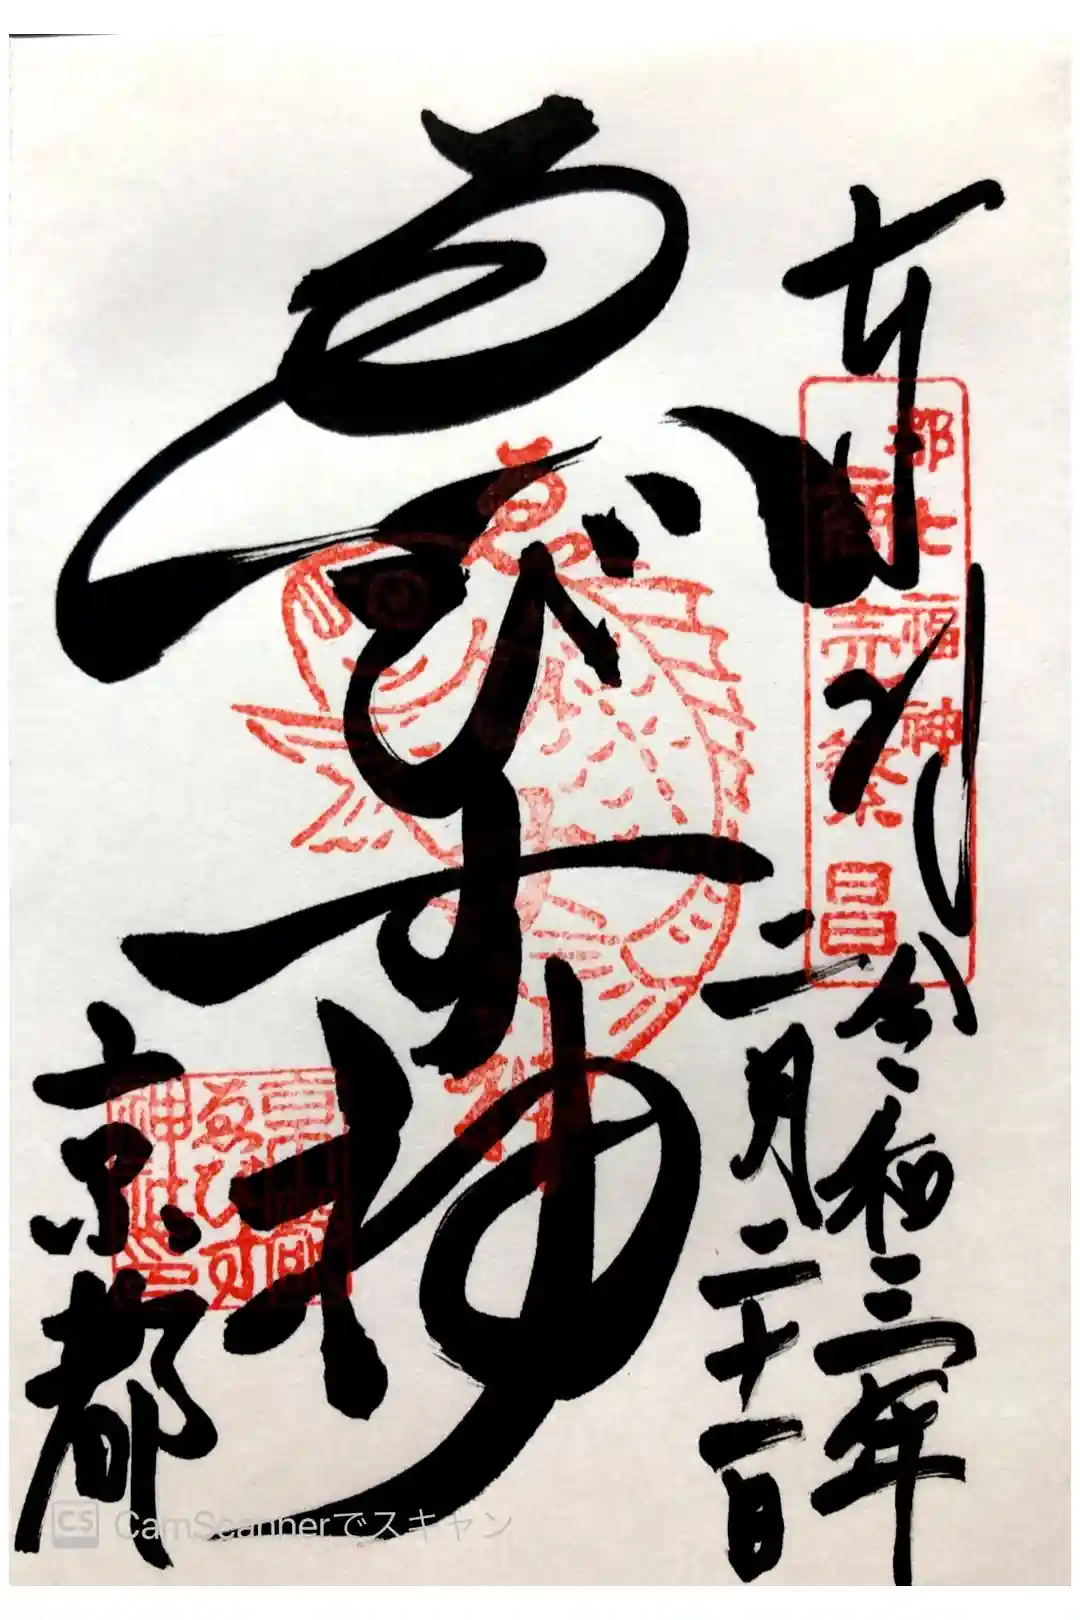 奉拝
都七福神
商売繁昌
令和三年
二月二十一日
ゑびす神
京都
ゑびす
神社印
CS CamScannerでスキャン